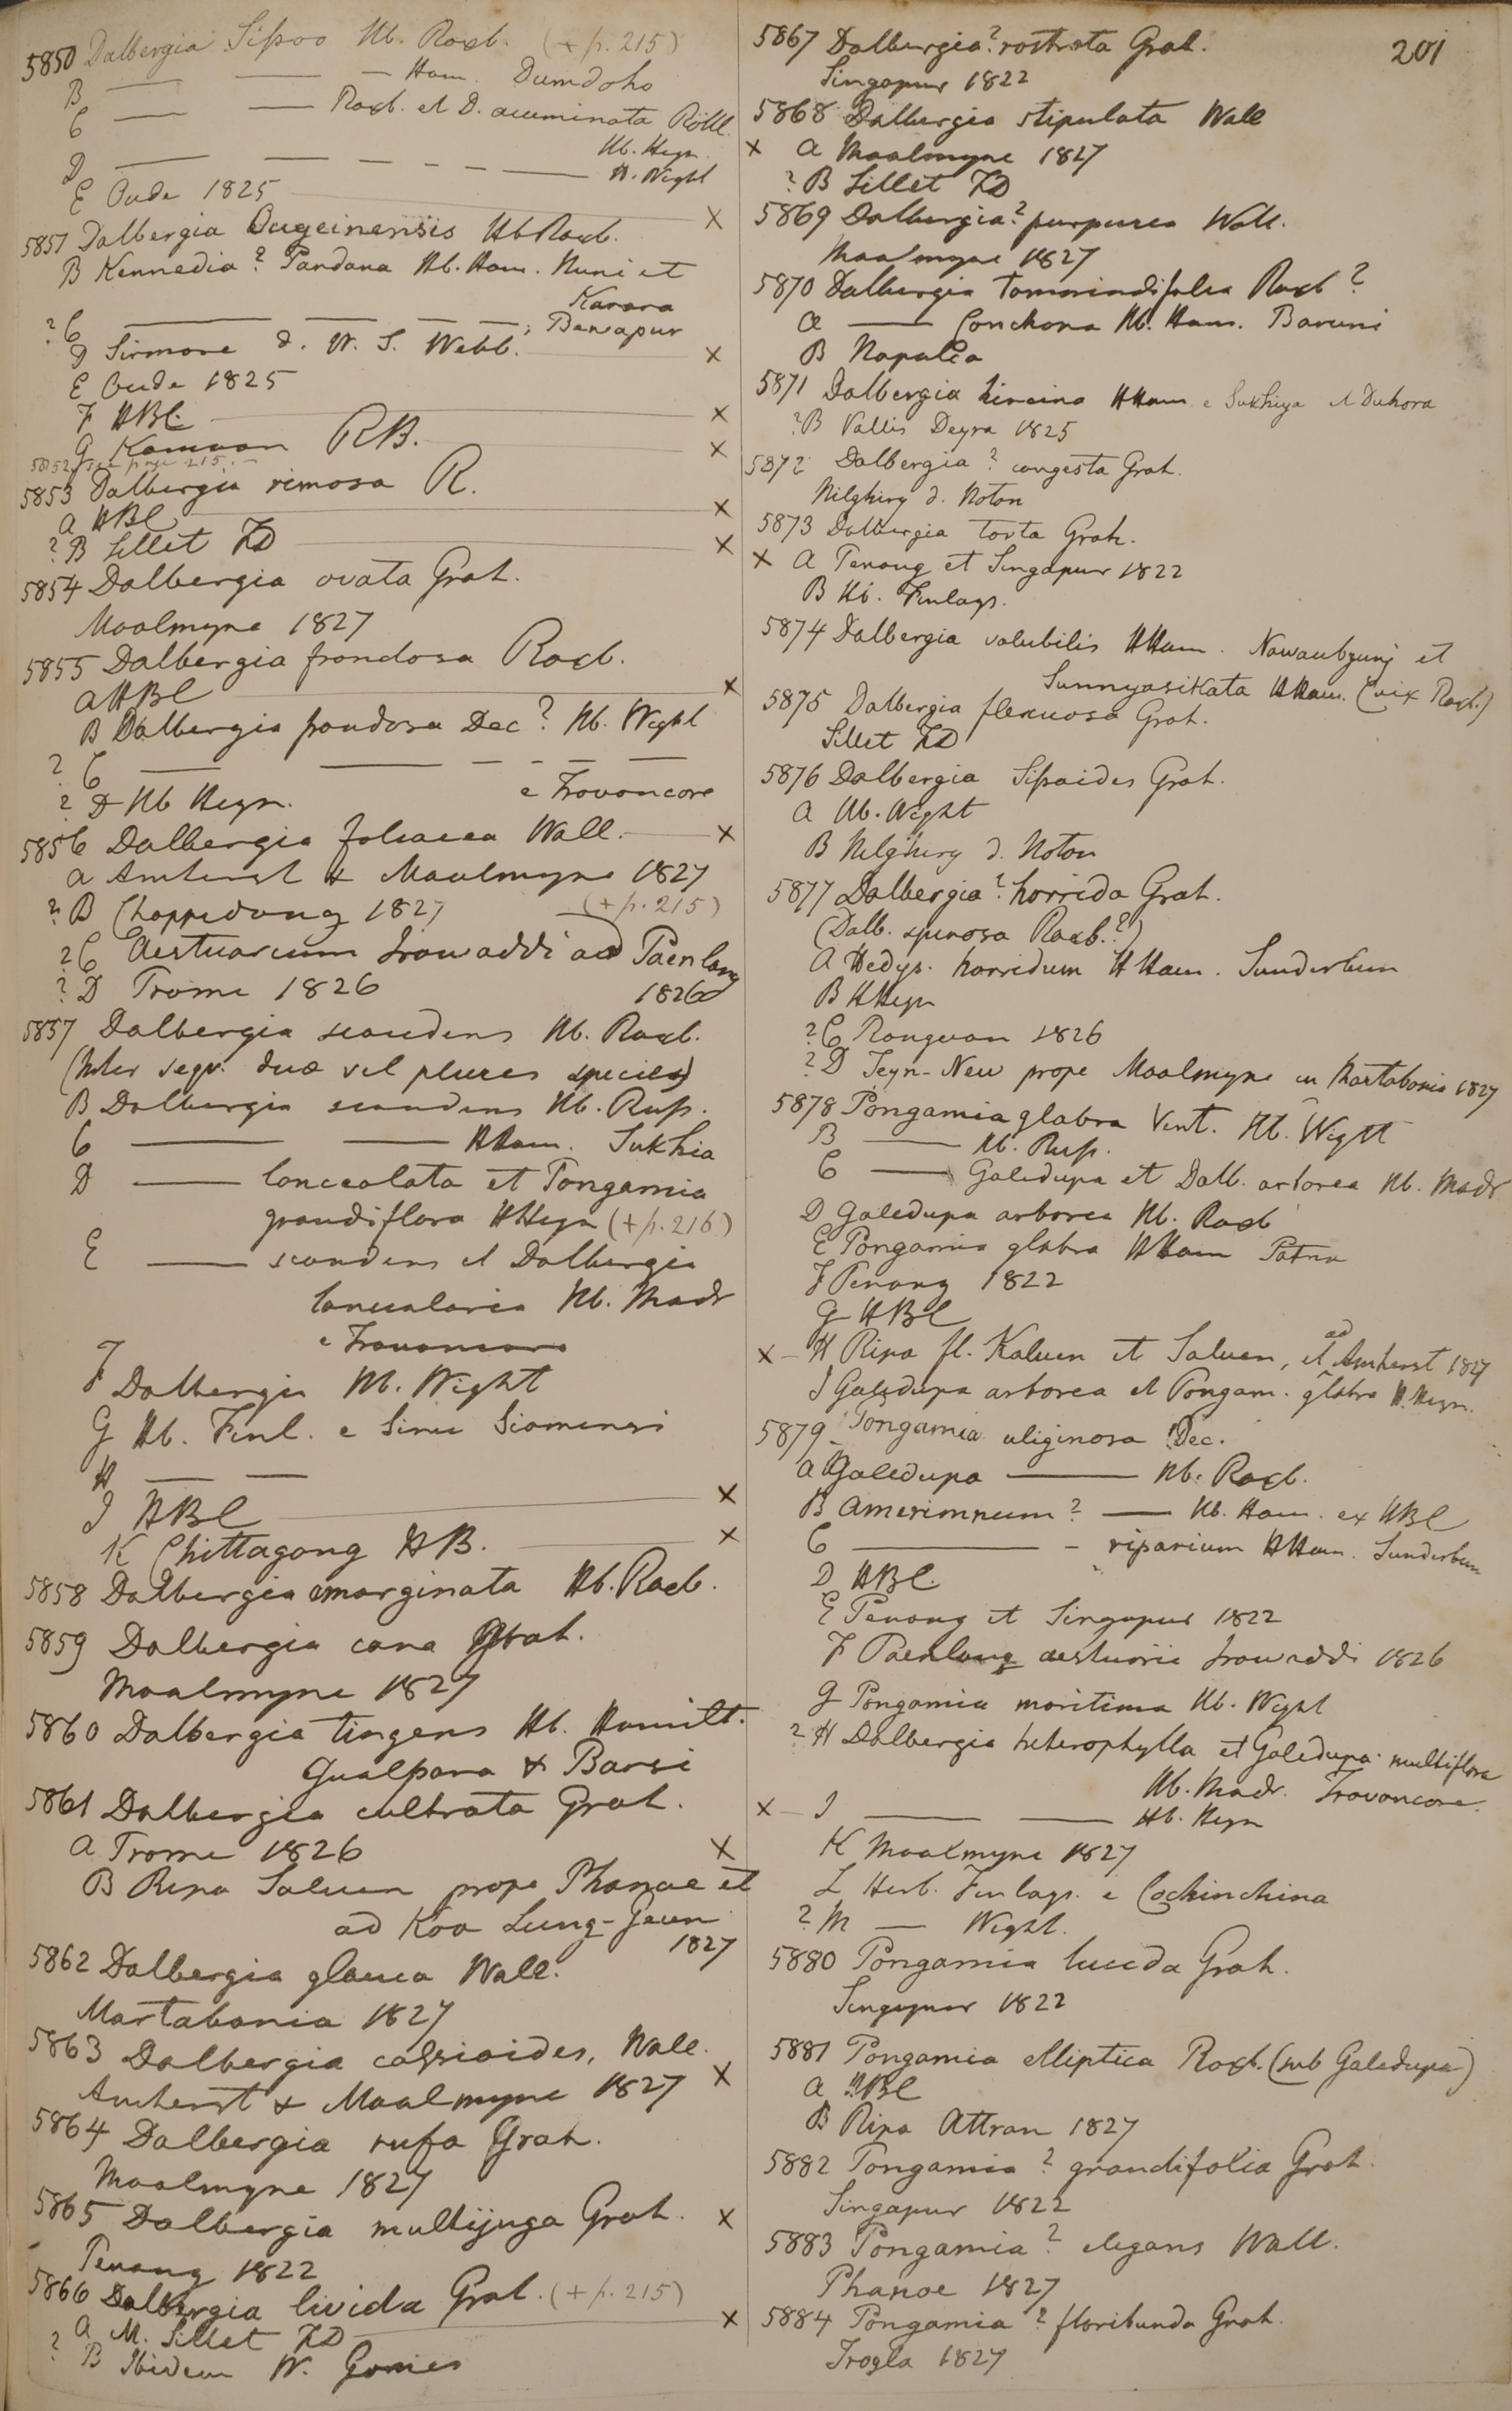 5850 Dalbergia Sissoo Hb. Roxb. (+ p. 215)
B — — — Ham. Dumdoho
C — — Roxb. et D. acuminata Rottl.
Hb. Heyn.
D — — — — — — H. Wight
E Oude 1825
5851 Dalbergia Ougeinensis Hb Roxb. ×
B Kennedia? Pandana Hb. Ham. Nuni et
Karara
?C — — — —; Benapur
D Sirmore d. W. S. Webb. ×
E Oude 1825
F HBC. ×
G Kamaon RB. ×
5852 see page 215.
5853 Dalbergia rimosa R.
a HBC ×
?B Sillet FD ×
5854 Dalbergia ovata Grah.
Moalmyne 1827
5855 Dalbergia frondosa Roxb.
a HBC ×
B Dalbergia frondosa Dec? Hb. Wight
? C — — — — — —
? D Hb Heyn. e Travancore
5856 Dalbergia foliacea Wall. ×
a Amherst & Moalmyne 1827
?B Chappedong 1827 (+ p. 215)
?C Aestuarium Irawaddi ad Paenlang
?D Prome 1826 1826
5857 Dalbergia scandens Hb. Roxb.
(Inter seqv. duæ vel plures species)
B Dalbergia scandens Hb. Russ.
C — — HHam. Sukhia
D — lanceolata et Pongamia
grandiflora HHeyn (+ p. 216)
E — scandens et Dalbergia
lanceolaria Hb. Madr
e Travancore
F Dalbergia Hb. Wight
G Hb. Finl. e Sinu Siamensi
H — —
I HBC ×
K Chittagong HB. ×
5858 Dalbergia emarginata Hb. Roxb.
5859 Dalbergia cana Grah.
Moalmyne 1827
5860 Dalbergia tingens Hb. Hamilt.
Gualpara & Barsi
5861 Dalbergia cultrata Grah.
a Prome 1826 ×
B Ripa Saluen prope Phanoe et
ad Koa Lung-Geun
1827
5862 Dalbergia glauca Wall.
Martabania 1827
5863 Dalbergia cassioides, Wall.
Amherst & Moalmyne 1827 ×
5864 Dalbergia rufa Grah.
Moalmyne 1827
5865 Dalbergia multijuga Grah. ×
Penang 1822
5866 Dalbergia livida Grah. (+ p. 215)
a M. Sillet FD ×
? B Ibidem W. Gomes
201
5867 Dalbergia? rostrata Grah.
Singapur 1822
5868 Dalbergia stipulata Wall
× a Moalmyne 1827
?B Sillet FD
5869 Dalbergia? purpurea Wall.
Moalmyne 1827
5870 Dalbergia Tamarindifolia Roxb?
a — Conchona Hb. Ham. Baruni
B Napalia
5871 Dalbergia hircina HHam e Sukhiya et Duhora
?B Vallis Deyra 1825
5872 Dalbergia? congesta Grah.
Nilghiry d. Noton
5873 Dalbergia torta Grah.
× a Penang et Singapur 1822
B Hb. Finlays.
5874 Dalbergia volubilis HHam. Nawaubgunj et
Sunnyasikata HHam. (vix Roxb.)
5875 Dalbergia flexuosa Grah.
Sillet FD
5876 Dalbergia Sissoides Grah.
a Hb. Wight
B Nilghiry d. Noton
5877 Dalbergia? horrida Grah.
(Dalb. spinosa Roxb.?)
a Hedys. horridum HHam. Sunderbun
B HHeyn
?C Rangoon 1826
?D Jeyn-New prope Moalmyne in Martabania 1827
5878 Pongamia glabra Vent. Hb. Wight
B — Hb. Russ.
C — Galedupa et Dalb. arborea Hb. Madr
D Galedupa arborea Hb. Roxb
E Pongamia glabra HHam Patna
F Penang 1822
G HBC
× — H Ripa fl. Kaluen et Saluen, et ad Amherst 1827
I Galedupa arborea et Pongam. glabra H. Heyn.
5879 Pongamia uliginosa Dec.
a Galedupa — Hb. Roxb.
B Amerimnum? — Hb. Ham. ex HBC
C — - riparium HHam. Sunderbun
D HBC.
E Penang et Singapur 1822
F Paenlang aestuarii Irawaddi 1826
G Pongamia maritima Hb. Wight
? H Dalbergia heterophylla et Galedupa multiflora
Hb. Madr. Travancore.
× — I — — Hb. Heyn
K Moalmyne 1827
L Herb. Finlays. e Cochinchina
? M — Wight.
5880 Pongamia lucida Grah.
Singapur 1822
5881 Pongamia elliptica Roxb. (sub Galedupa)
a HBC
B Ripa Attran 1827
5882 Pongamia? grandifolia Grah.
Singapur 1822
5883 Pongamia? elegans Wall.
Phanoe 1827
5884 Pongamia? floribunda Grah.
Trogla 1827